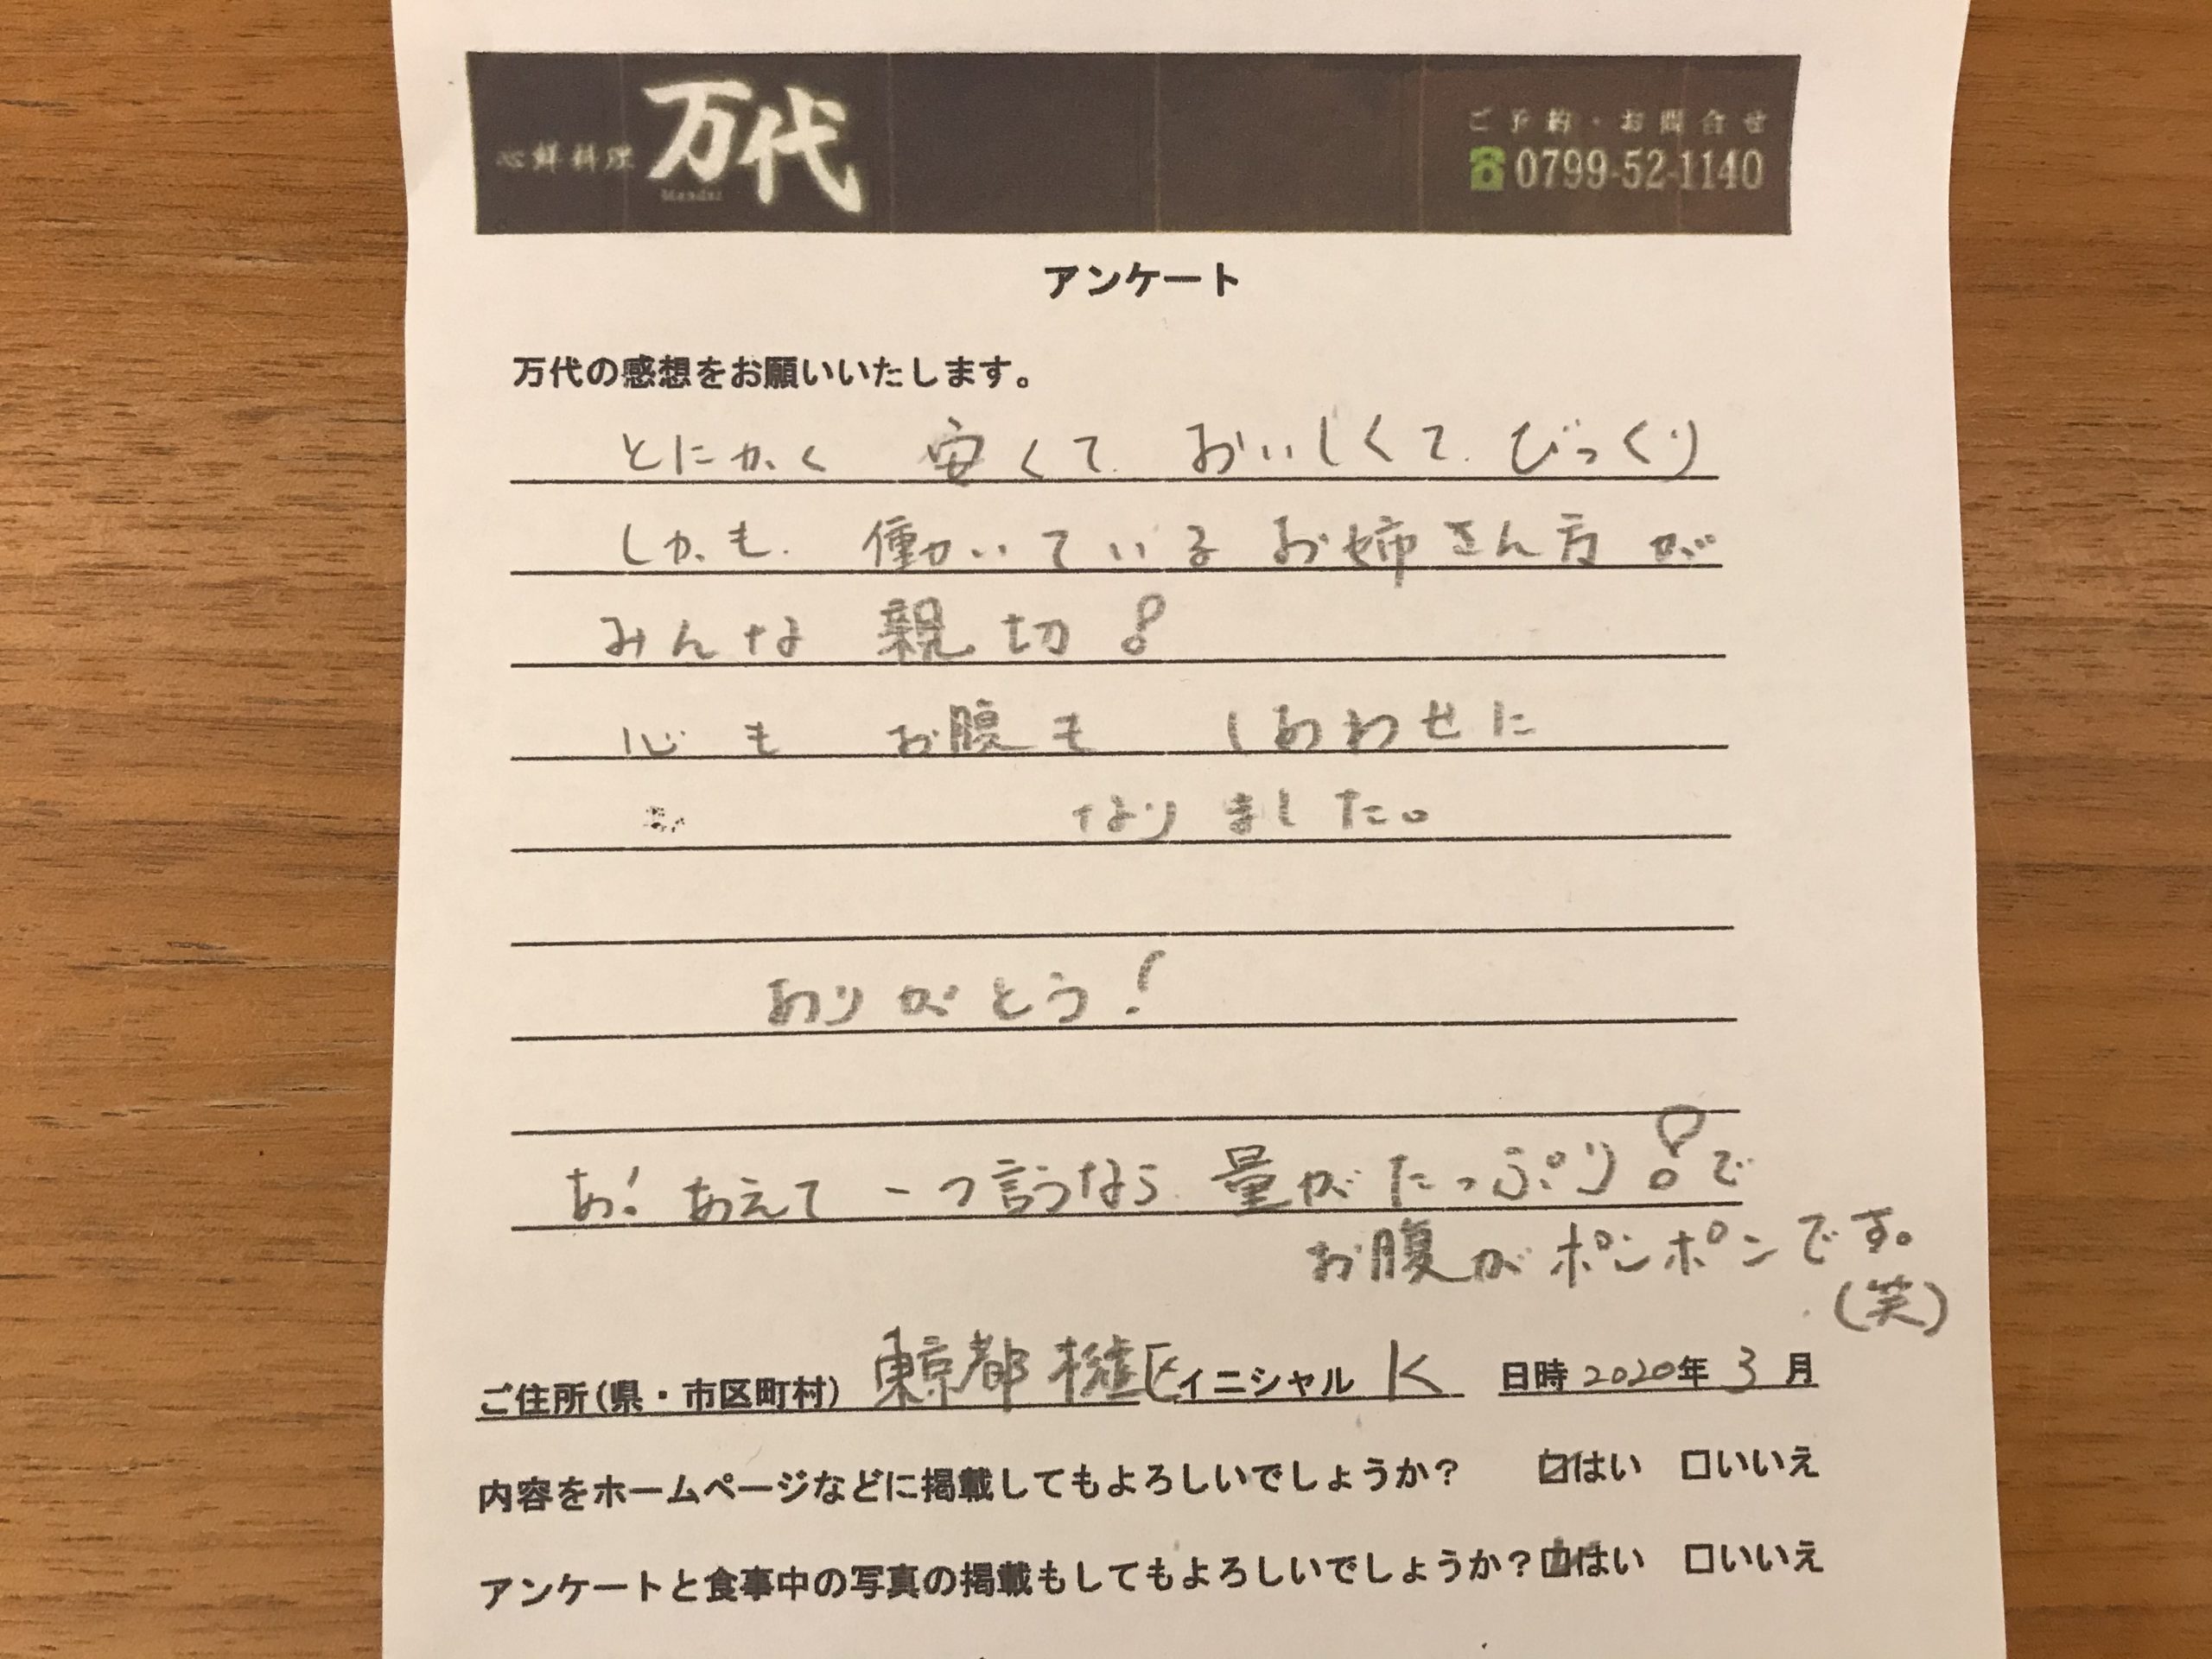 心鮮料理 万代
Mandai
ご予約・お問合せ
0799-52-1140
アンケート
万代の感想をお願いいたします。
とにかく 安くて おいしくて びっくり
しかも 働いている お姉さん方が
みんな 親切!
心も お腹も しあわせに
なりました。
ありがとう!
あ! あえて 一つ言うなら 量がたっぷり!で
お腹がポンポンです。
(笑)
ご住所(県・市区町村) 東京都 板橋区 イニシャル K 日時 2020年 3月
内容をホームページなどに掲載してもよろしいでしょうか? ☑はい □いいえ
アンケートと食事中の写真の掲載もしてもよろしいでしょうか? ☑はい □いいえ